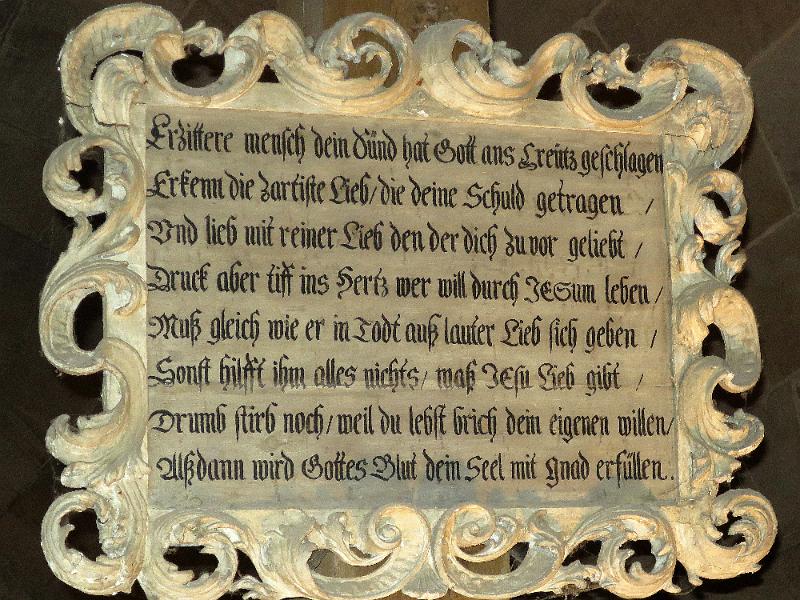 Erzittere mensch dein Sünd hat Gott ans Creutz geschlagen
Erkenn die zartiste Lieb/ die deine Schuld getragen /
Vnd lieb mit reiner Lieb den der dich zuvor geliebt /
Druck aber tiff ins Hertz wer will durch JESum leben /
Muß gleich wie er in Todt auß lauter Lieb sich geben /
Sonst hilfft ihm alles nichts/ waß JEsu Lieb gibt /
Drumb stirb noch/ weil du lebst brich dein eigenen willen/
Alßdann wird Gottes Blut dein Seel mit Gnad erfüllen.